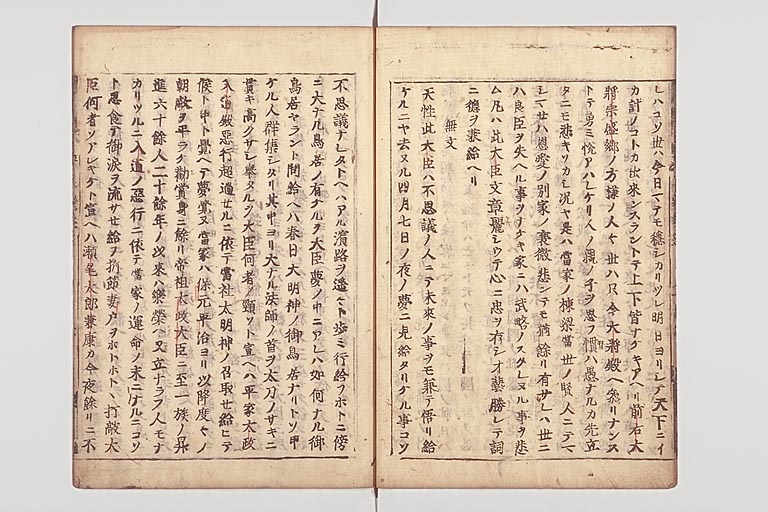 レハコソ世ハ今日マテモ穏シカリツレ明日ヨリシテ天下ニイ
カ計ノコトカ出来ンスラントテ上下皆ナケキアヘリ前右大
将宗盛郷ノ方様ノ人ハ世ハ只今大将殿ヘ參リナンス
トテ勇ミ悦アハレケリ人ノ親ノ子ヲ思フ慣ハ愚ナルカ先立
タニモ悲キソカシ況ヤ是ハ當家ノ棟梁當世ノ賢人ニテマ
シマセハ恩愛ノ別家ノ衰微悲シテモ猶餘リ有サレハ世ニ
ハ良臣ヲ失ヘル事ヲナケキ家ニハ武略ノスタレヌル事ヲ悲
ム凡ハ此大臣文章麗シウテ心ニ忠ヲ存シ才藝勝レテ詞
ニ德ヲ兼給ヘリ
無文
天性此大臣ハ不思議ノ人ニテ未來ノ事ヲモ兼テ悟リ給
ケルニヤ去ヌル四月七日ノ夜ノ夢ニ見給タリケル事コソ
不思議ナレタトヘハアル濱路ヲ遙々ト歩ミ行給フホトニ傍
ニ大ナル鳥居ノ有ケルヲ大臣夢ノ中ニアレハ如何ナル御
鳥居ヤラント問給ヘハ春日大明神ノ御鳥居ナリトソ申
ケル人群集シタリ其中ヨリ大ナル法師ノ首ヲ太刀ノサキニ
貫キ高クサシ擧タルヲ大臣何者ノ頸ソト宣ヘハ平家太政
入道殿惡行超過セルニ依テ當社大明神ノ召取セ給ヒテ
候ト申ト覺ヘテ夢覺ヌ當家ハ保元平治ヨリ以降度々ノ
朝敵ヲ平ラケ勸賞身ニ餘リ帝祖太政大臣ニ至一族ノ昇
進六十餘人二十餘年ノ以來ハ樂榮ヘ又立ナラフ人モナ
カリツルニ入道ノ惡行ニ依テ當家ノ運命ノ末ニナルニコソ
ト思食テ御涙ヲ流サセ給ヲ折節妻戸ヲホトホトヽ打敲大
臣何者ソアレキケト宣ヘハ瀬尾太郎兼康カ今夜餘リニ不